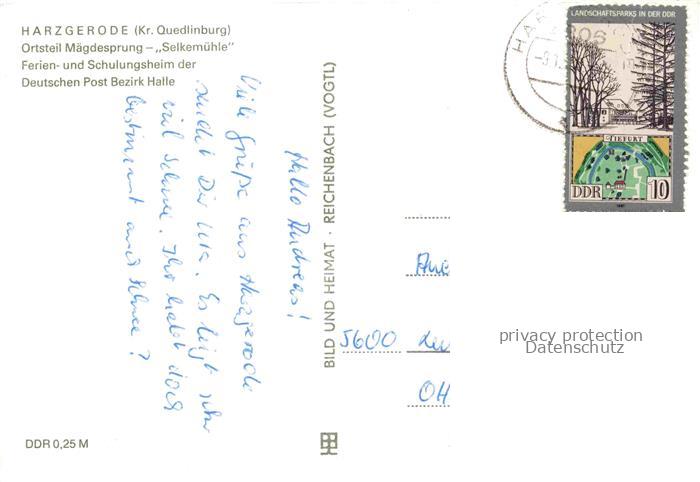 HARZGERODE (Kr. Quedlinburg)
Ortsteil Mägdesprung – „Selkemühle"
Ferien- und Schulungsheim der
Deutschen Post Bezirk Halle
Hallo Andreas!
Viele Grüße aus Harzgerode
sendet Dir Utz. Es liegt sehr
viel Schnee. Ihr habt doch
bestimmt auch Schnee?
DDR 0,25 M
BILD UND HEIMAT · REICHENBACH (VOGTL)
HAR
LANDSCHAFTSPARKS IN DER DDR
TIEFURT
DDR 10
1981
5600
privacy protection
Datenschutz